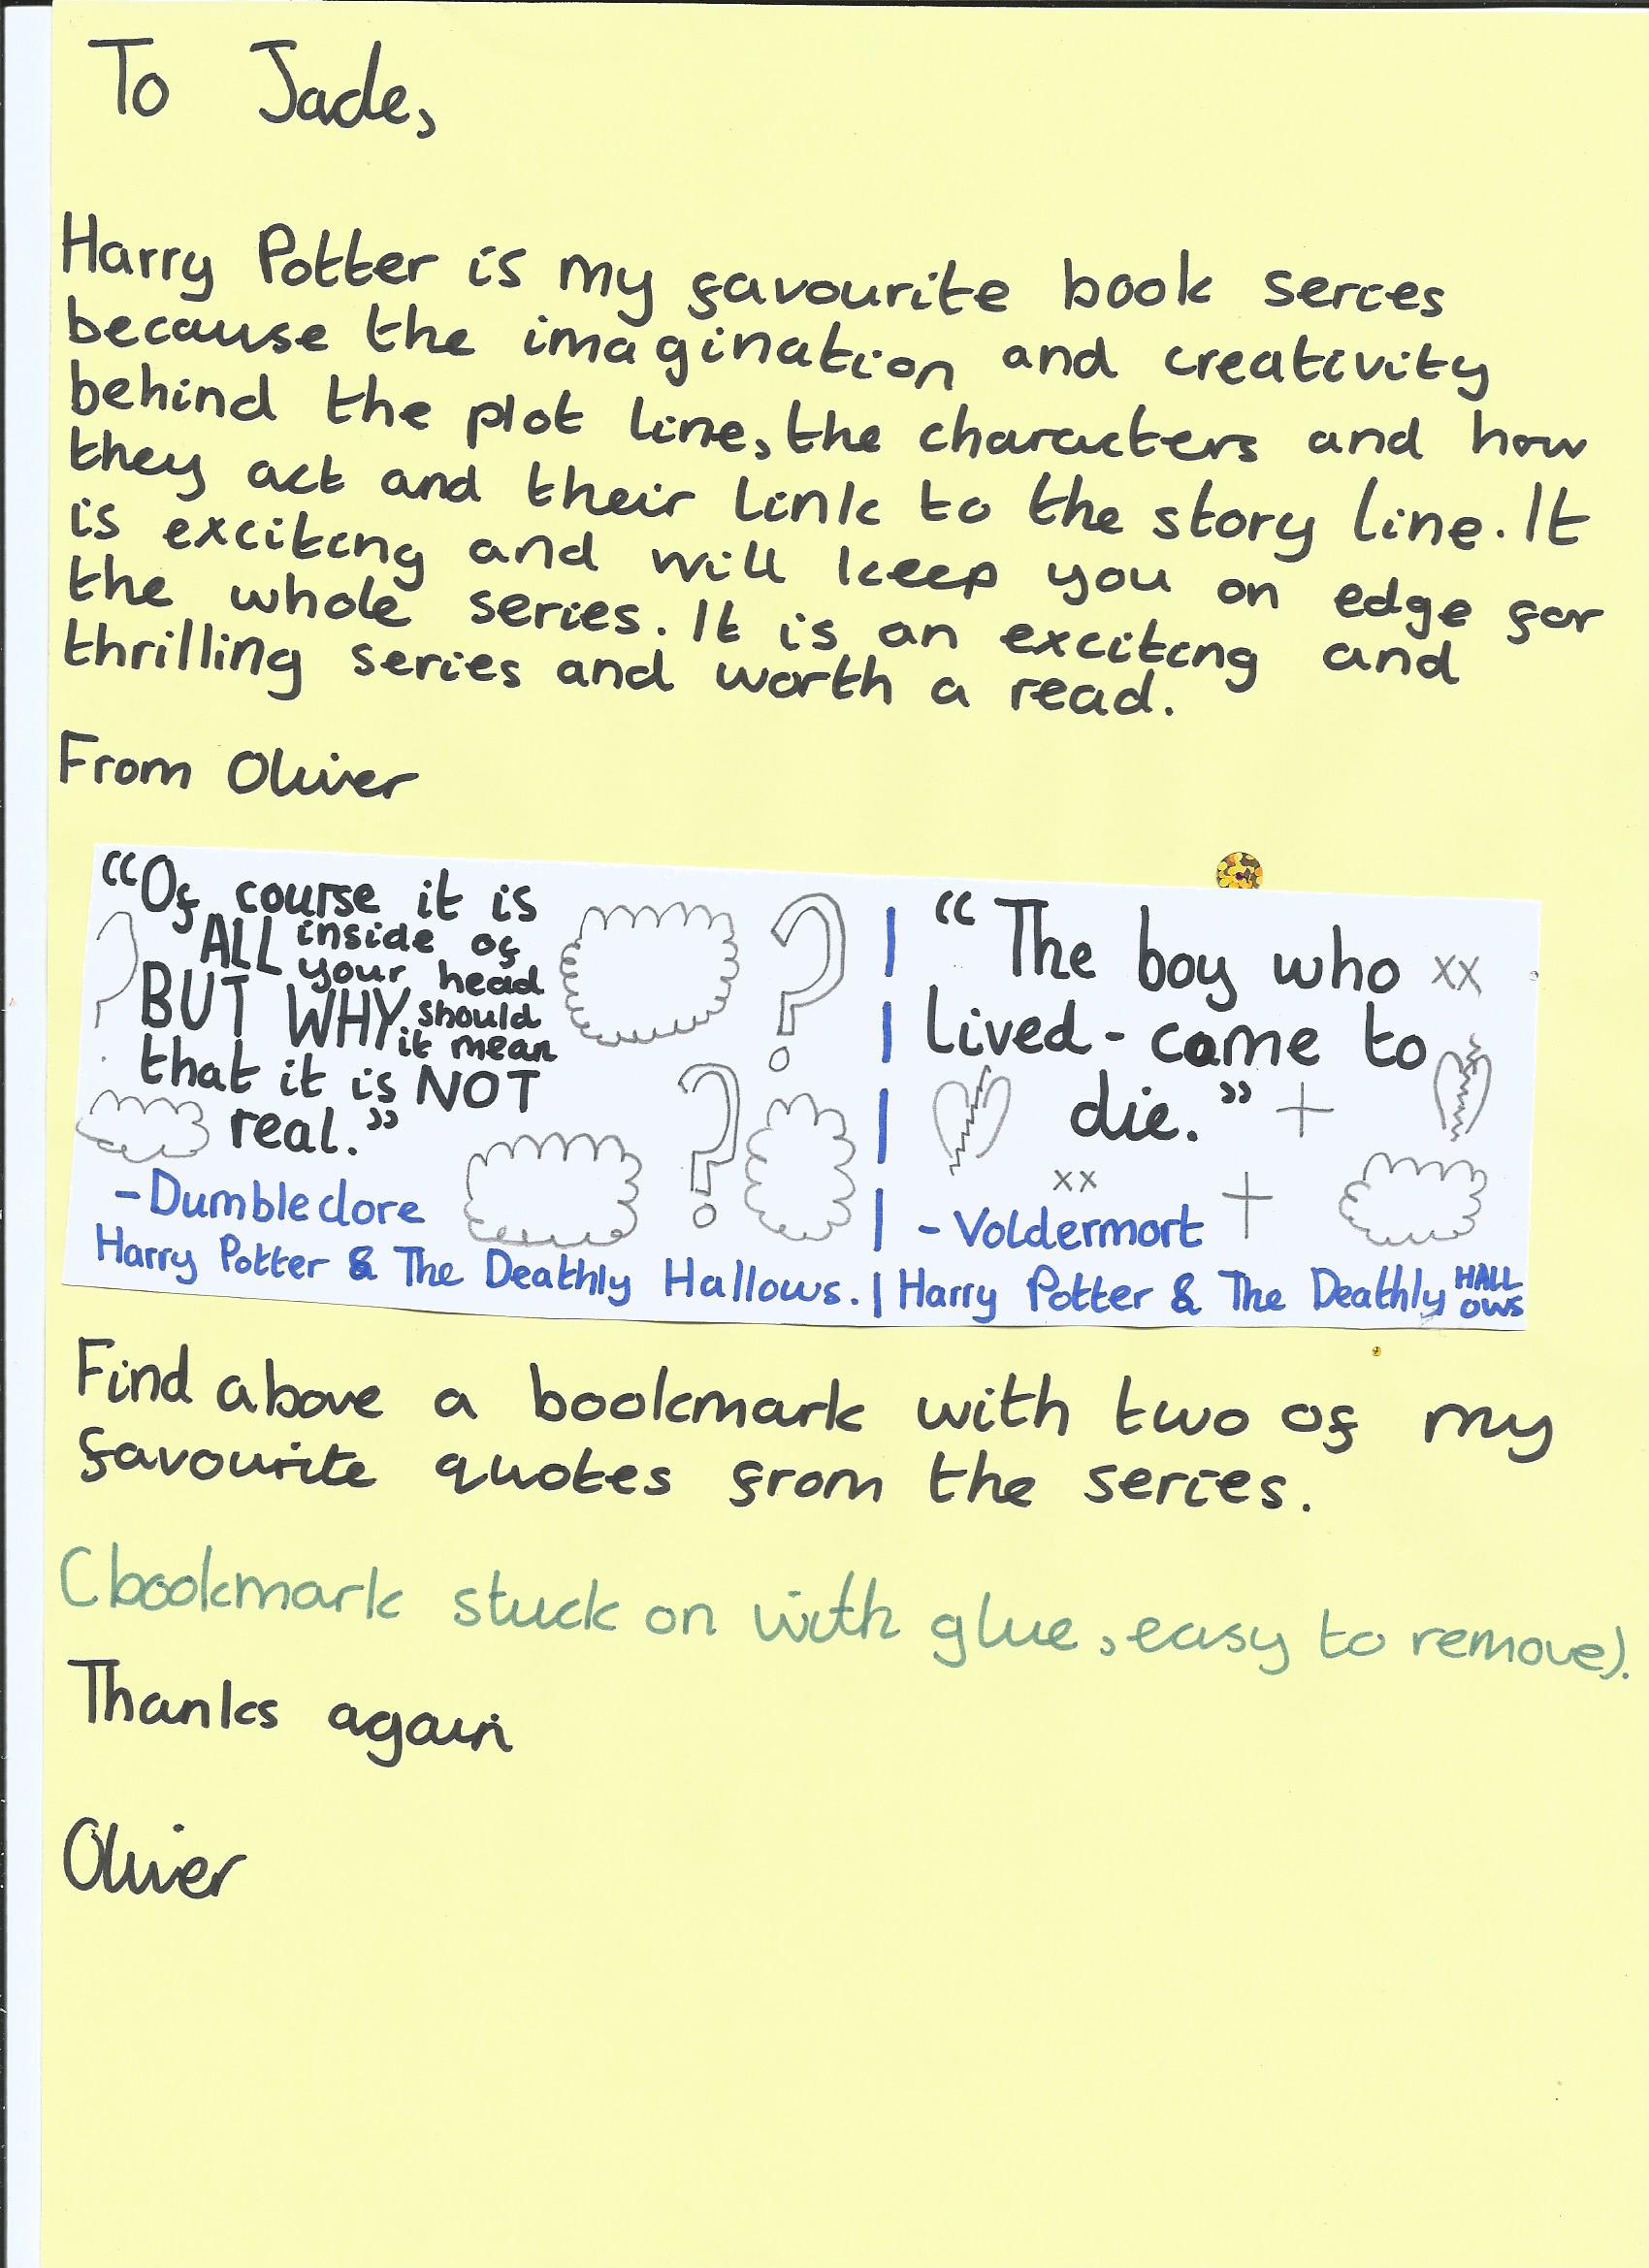 To Jade,
Harry Potter is my favourite book series
because the imagination and creativity
behind the plot line, the characters and how
they act and their link to the story line. It
is exciting and will keep you on edge for
the whole series. It is an exciting and
thrilling series and worth a read.
From Oliver
"Of course it is
ALL inside of
your head
BUT WHY should
it mean
that it is NOT
real."
-Dumbledore
Harry Potter & The Deathly Hallows.
"The boy who xx
lived - come to
die."
xx
- Voldermort
Harry Potter & The Deathly HALL
OWS
Find above a bookmark with two of my
favourite quotes from the series.
(bookmark stuck on with glue, easy to remove).
Thanks again
Oliver